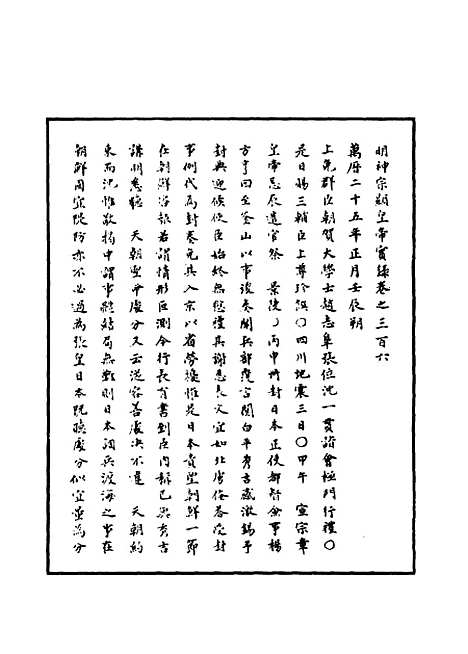 明神宗顯皇帝實錄卷之三百六
萬曆二十五年正月壬辰朔
上免群臣朝賀大學士趙志皐張位沈一貫詣會極門行禮〇
是日賜三輔臣上尊珍饌〇四川地震三日〇甲午 宣宗章
皇帝忌辰遣官祭 景陵〇丙申冊封日本正使都督僉事楊
方亨回至釜山以事竣奏聞兵部覆言關白平秀吉感激錫予
封典迎候使臣始終無愆禮其謝恩表文宜如北虜俺荅受封
事例代為封奏免其入京以省勞擾惟是日本責望朝鮮一節
在朝鮮咨報若謂情形叵測今行長有書到臣內辭已與秀吉
講明悉聽 天朝聖斷處分又云從容善處決不違 天朝約
束而沈惟敬揭中謂事體結局無難則日本調兵渡海之事在
朝鮮固宜隄防亦不必過為張皇日本既聽處分似宜量為分